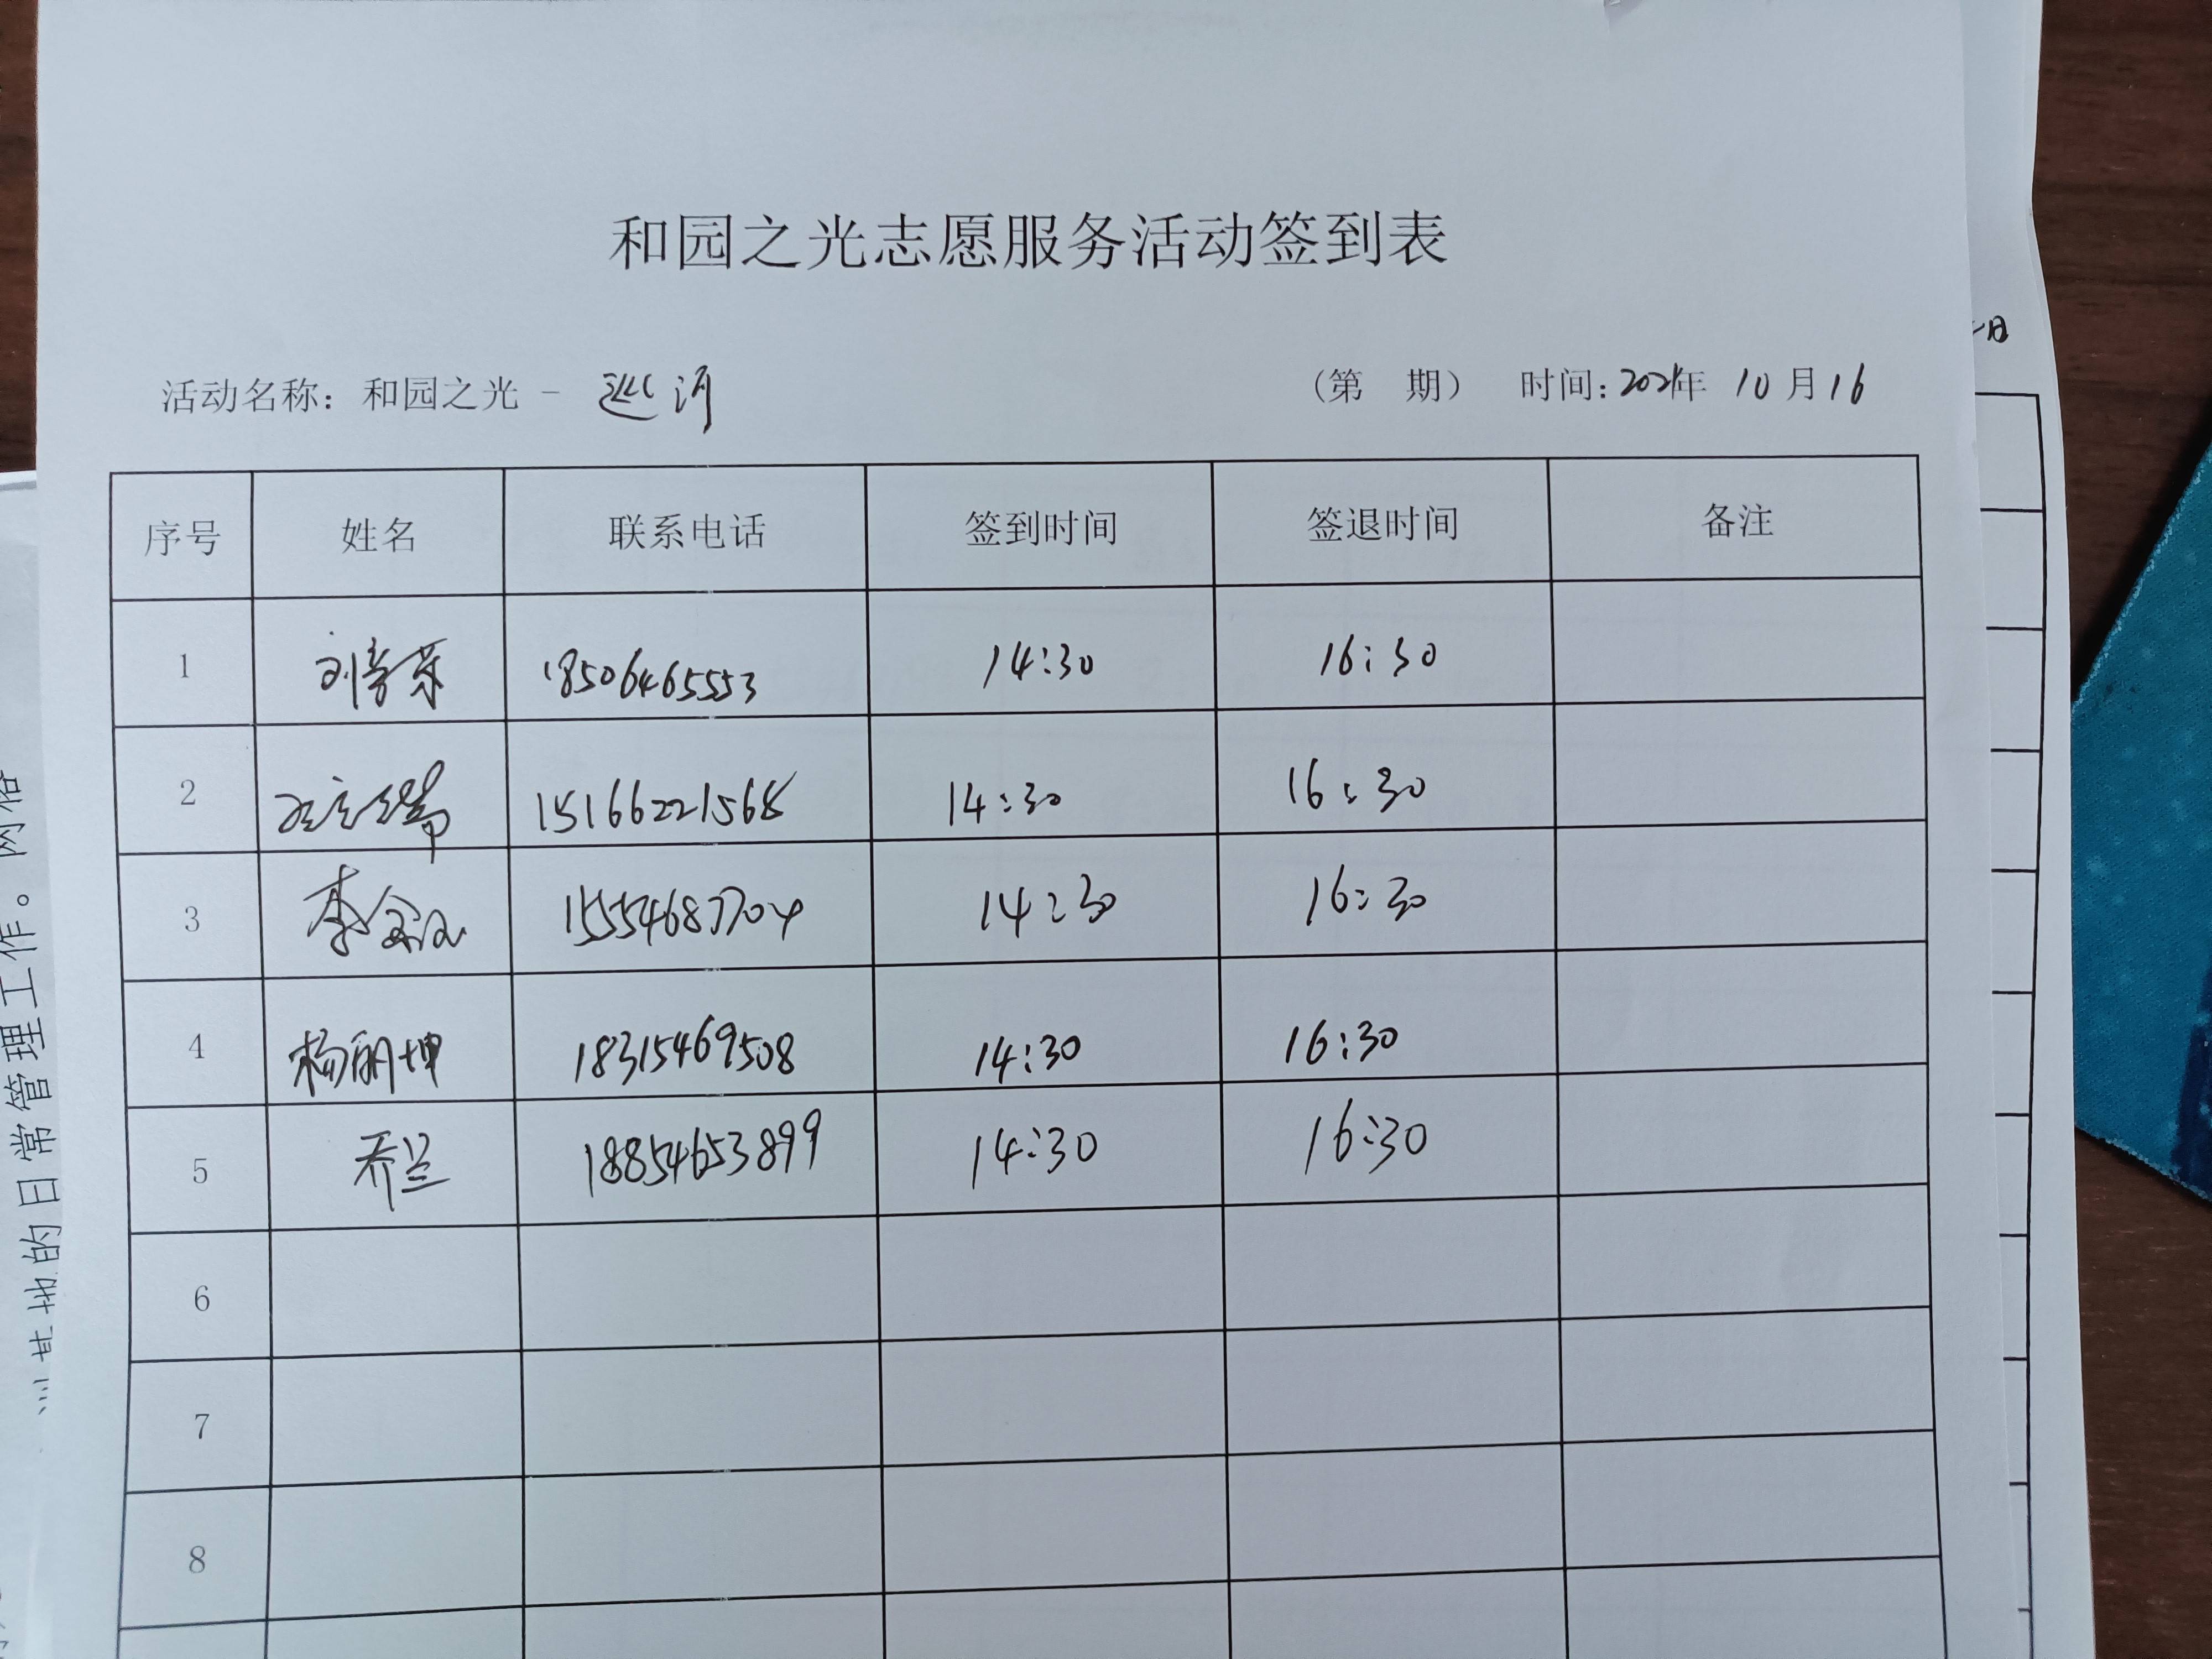 和园之光志愿服务活动签到表
活动名称：和园之光 - 巡河 （第 期） 时间：2021年 10月16
序号 姓名 联系电话 签到时间 签退时间 备注
1 刘 荣 18506465553 14:30 16:30
2 15166221568 14:30 16:30
3 李 15554687704 14:30 16:30
4 杨丽坤 18315469508 14:30 16:30
5 乔兰 18854653899 14:30 16:30
6
7
8
日
其地的日常管理工作。网格